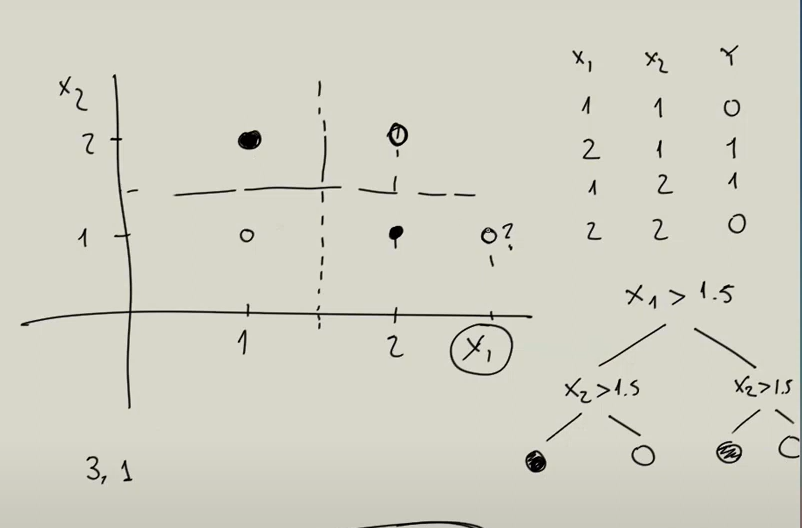 x₂
2
1
?
1 2 x₁
3, 1
x₁ x₂ Y
1 1 0
2 1 1
1 2 1
2 2 0
x₁ > 1.5
x₂ > 1.5 x₂ > 1.5